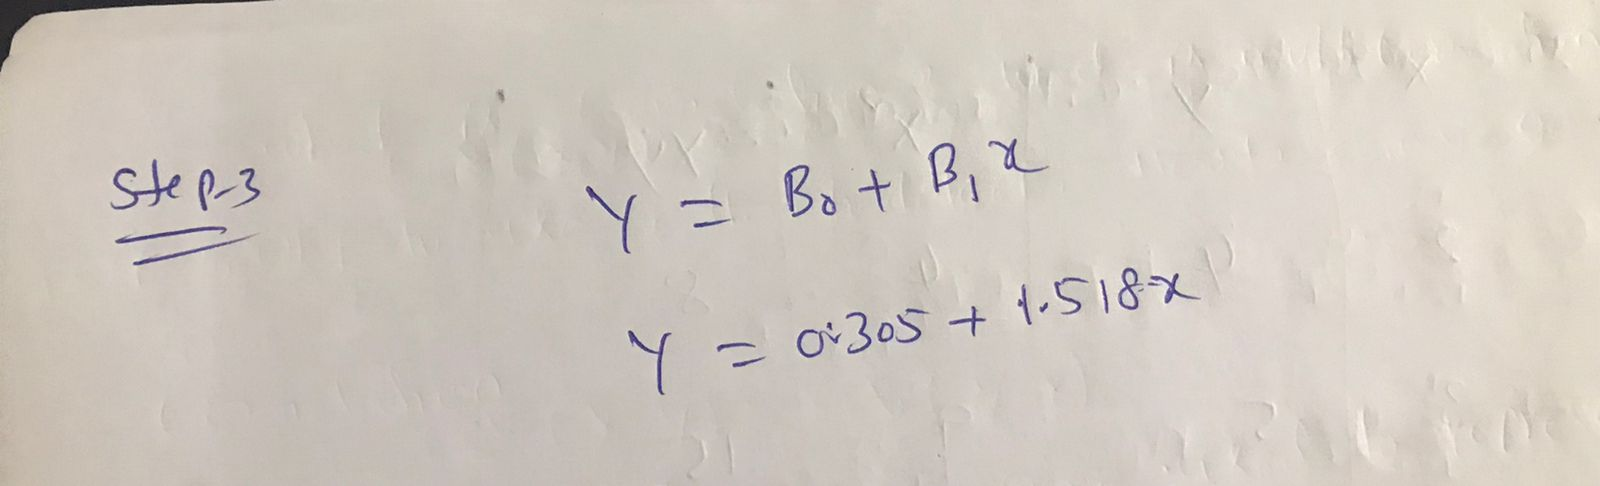 Step-3
Y = B₀ + B₁x
Y = 0.305 + 1.518x